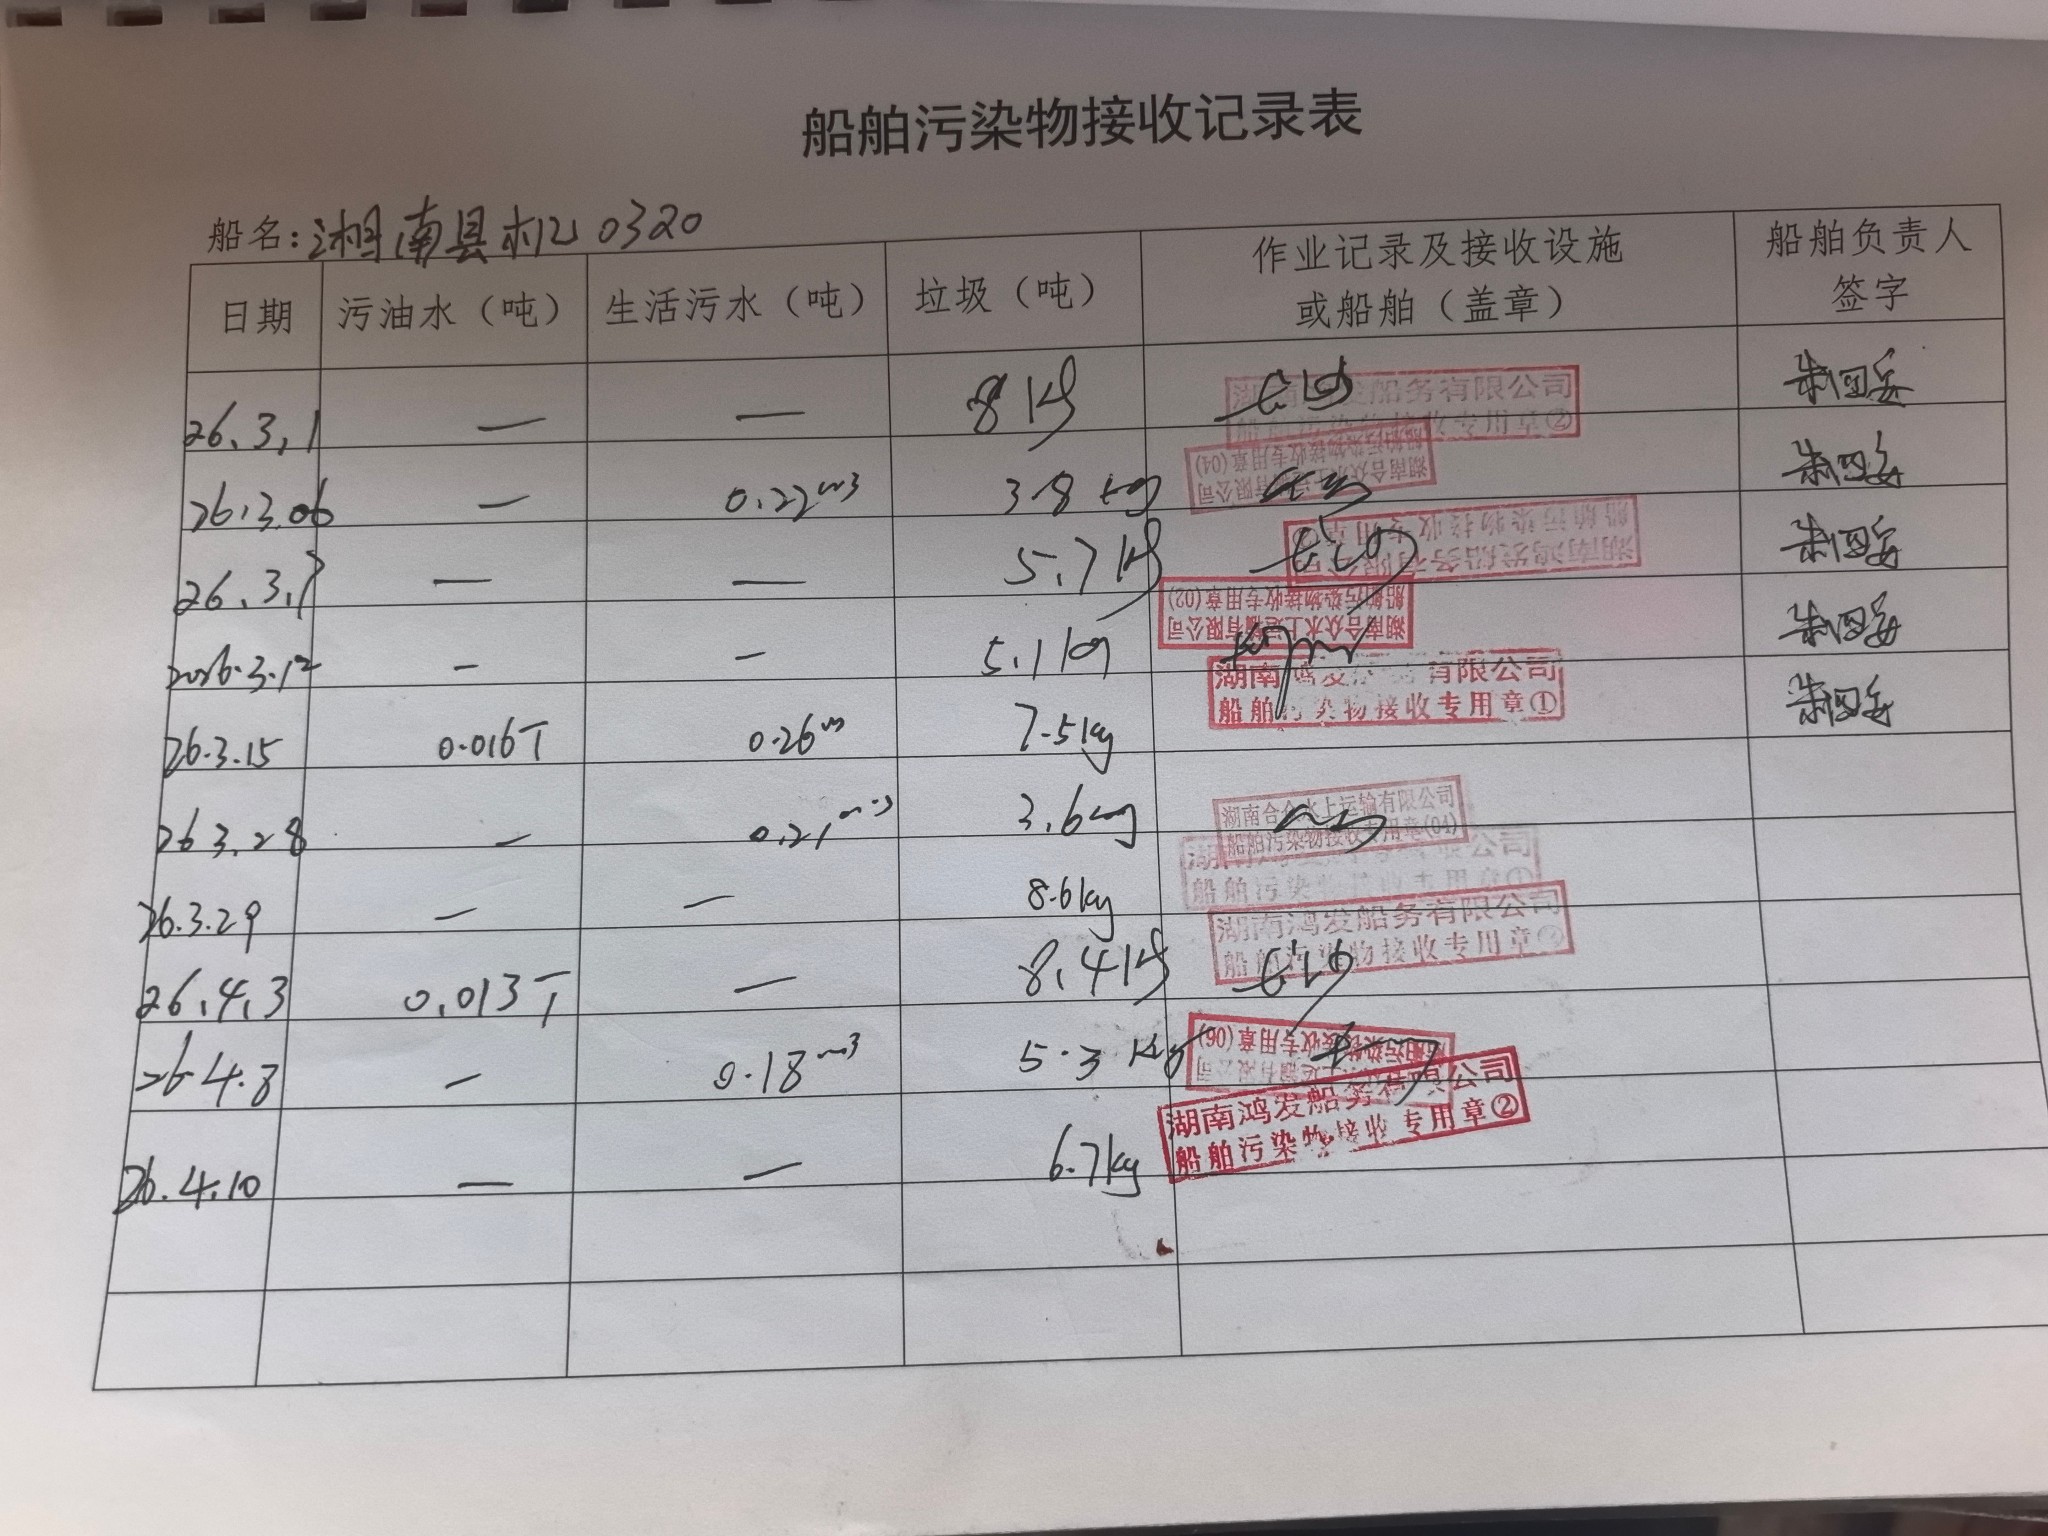 船舶污染物接收记录表
船名：湘南县机0320
日期 污油水（吨） 生活污水（吨） 垃圾（吨） 作业记录及接收设施或船舶（盖章） 船舶负责人签字
26.3.1 — — 8kg 湖南鸿发船务有限公司 船舶污染物接收专用章②
26.3.06 — 0.22m3 3.8kg 湖南合众水上运输有限公司 船舶污染物接收专用章(04)
26.3.7 — — 5.7kg 湖南鸿发船务有限公司 船舶污染物接收专用章
2026.3.12 — — 5.1kg 湖南合众水上运输有限公司 船舶污染物接收专用章(02)
26.3.15 0.016T 0.26m 7.5kg 湖南鸿发船务有限公司 船舶污染物接收专用章①
26.3.28 — 0.21m3 3.6kg 湖南合众水上运输有限公司 船舶污染物接收专用章(04)
26.3.29 — — 8.6kg 船舶污染物接收专用章①
26.4.3 0.013T — 8.4kg 湖南鸿发船务有限公司 船舶污染物接收专用章②
26.4.8 — 0.18m3 5.3kg 船舶污染物接收专用章(06)
26.4.10 — — 6.7kg 湖南鸿发船务有限公司 船舶污染物接收专用章②